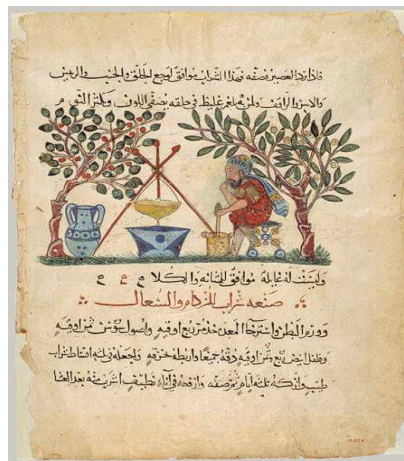 العصير فصفه فهذا الشراب موافق لوجع الحلق والجنب
ولمن به بلغم غليظ في حلقه يصفي اللون ويكثر النوم
وليست له غايلة موافق للمثانه والكلا
صنعه شراب للزكام والسعال
وورم البطن واسترخا المعده خذ مر ربع اوقيه واصول سوسن ثمن اوقيه
وفلفل ابيض ربع وثمن اوقيه دقه جميعا واربطه بخرقه واجعله في ثلثه اقساط شراب
طيب واتركه ثلثه ايام ثم صفه وارفعه في اناء نظيف اشرب منه بعد العشا